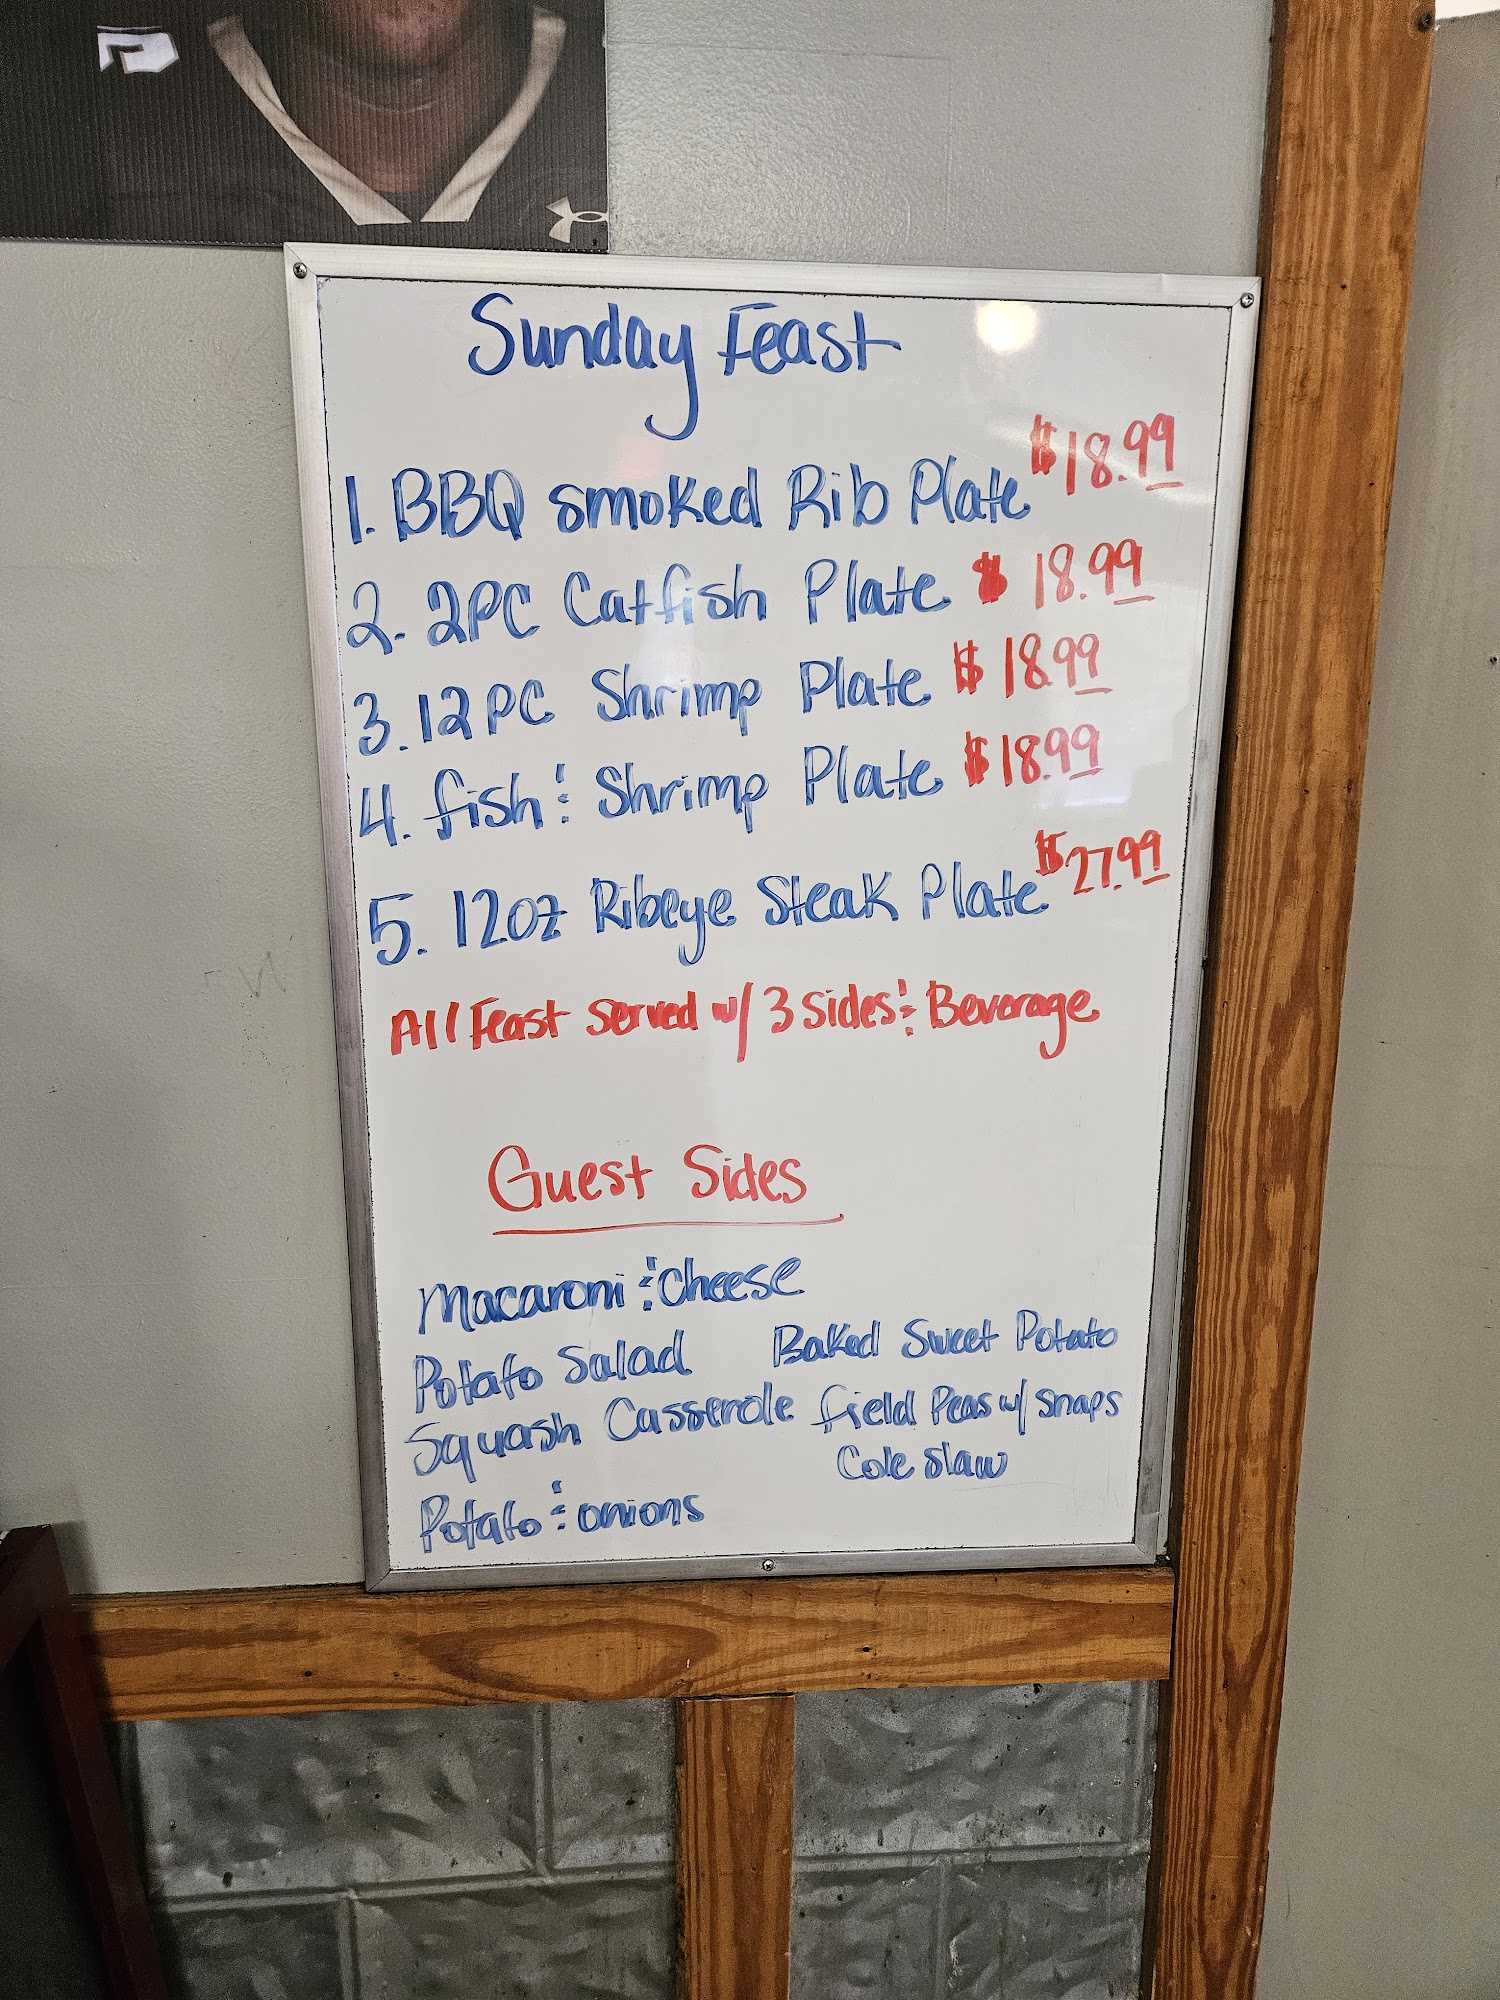 Sunday Feast
1. BBQ smoked Rib Plate $18.99
2. 2PC Catfish Plate $18.99
3. 12PC Shrimp Plate $18.99
4. fish & Shrimp Plate $18.99
5. 12oz Ribeye Steak Plate $27.99
All Feast served w/ 3 sides & Beverage
Guest Sides
Macaroni & Cheese
Potato Salad
Squash Casserole
Potato & onions
Baked Sweet Potato
field Peas w/ snaps
Cole slaw